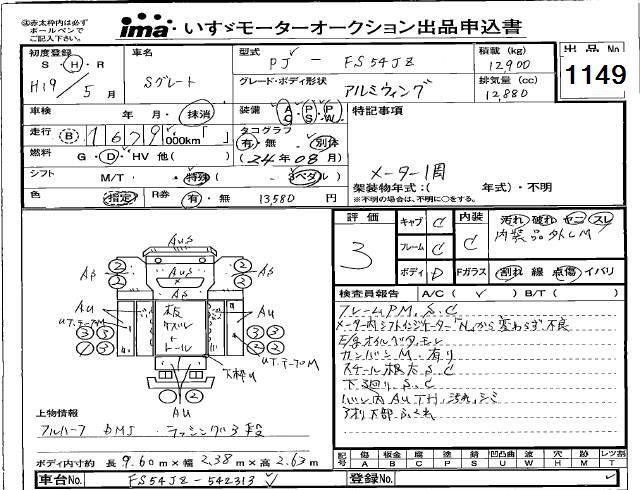 ㊟赤太枠内は必ず
ボールペンで
ご記入下さい。
ima いすゞモーターオークション出品申込書
初度登録
S・H・R
H19年5月
車名
Sグレート
型式
PJ-FS54JZ
積載 (kg)
12900
出品No
1149
グレード・ボディ形状
アルミウィング
排気量 (cc)
12,880
車検
年 月・抹消
装備
AC PS PW
特記事項
走行
B 1679 000km「 」
タコグラフ
有・無 別体
(24年08月)
燃料
G・D・HV 他( )
メーター1周
シフト
M/T・特殊( ペダル )
架装物年式:( 年式)・不明
※不明の場合は、不明に○をする。
色
指定
R券
有・無 13,580 円
評価
3
キャブ C
フレーム C
ボディ D
内装
C
汚れ 破れ ヤニ スレ
内装品外しM
Fガラス
割れ 線 点傷 イバリ
検査員報告 A/C( ✓ ) B/T( )
フレームP.M.S.C
メーター内シフトインジケーター"N"から変わらず不良
E/gオイルベタモレ
カンバンM.有り
スケール根太S.C
下廻り.S.C
バン内AUTH.汚れ.シミ
アオリ下部ふくれ
AUS
AS
AS
AU
UT.テープM
板
ズレ
+
トール
AU
UT.テープM
下枠U
AU
上物情報
フルハーフ DMJ ラッシング3段
ボディ内寸約 長 9.60m×幅 2.38m×高 2.63m
記号
傷 板金 腐 塗 錆 凹凸曲 波 穴 跡 レツ割
A B C P S U W H M T
車台No.
FS54JZ-542313
登録No.